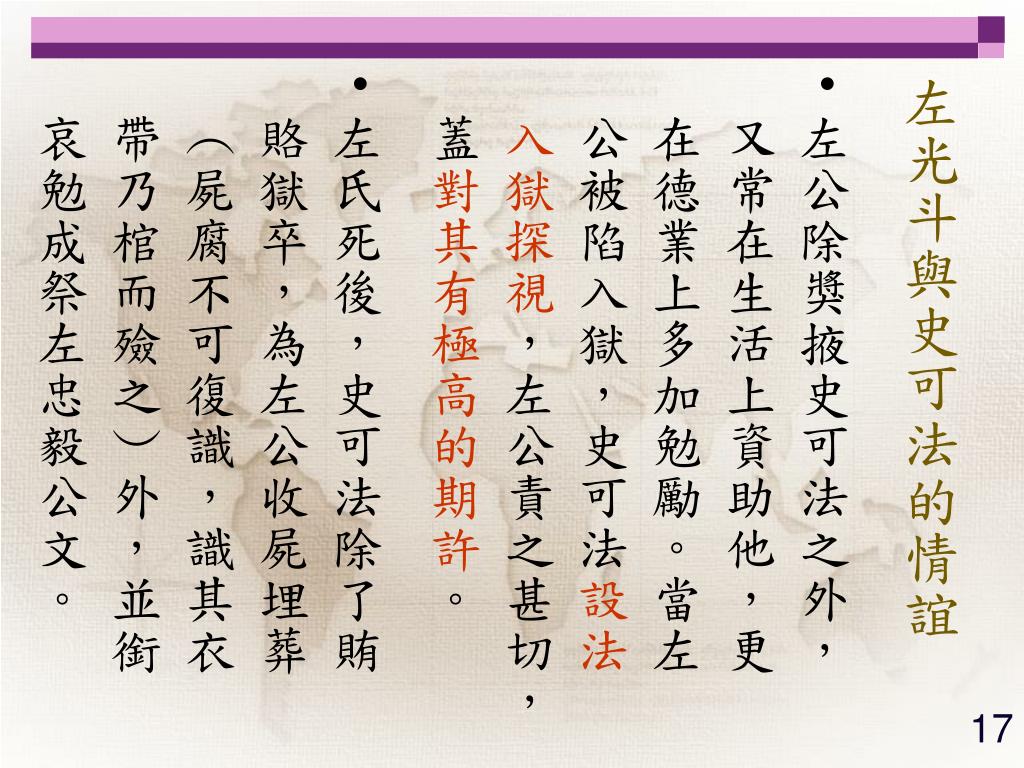 左光斗與史可法的情誼
• 左公除獎掖史可法之外，
又常在生活上資助他，更
在德業上多加勉勵。當左
公被陷入獄，史可法設法
入獄探視，左公責之甚切，
蓋對其有極高的期許。
• 左氏死後，史可法除了賄
賂獄卒，為左公收屍埋葬
（屍腐不可復識，識其衣
帶乃棺而殮之）外，並銜
哀勉成祭左忠毅公文。
17